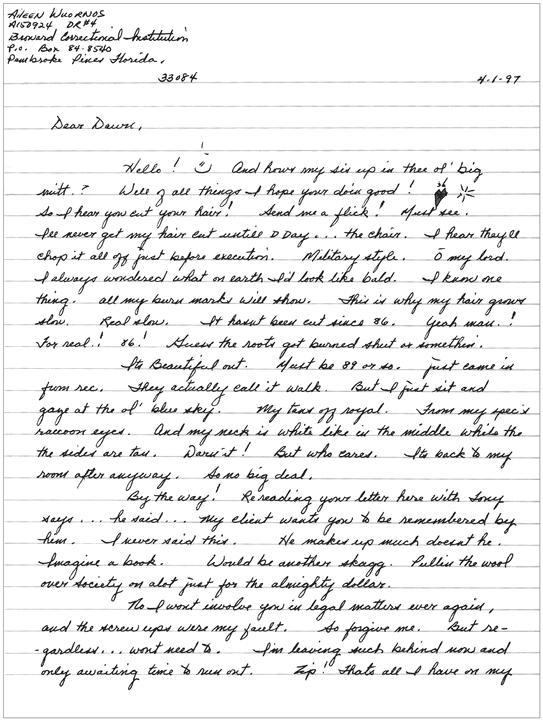 Aileen Wuornos
A150924 DR#4
Broward Correctional Institution
P.O. Box 84-8540
Pembroke Pines Florida,
33084
4-1-97
Dear Dawn,
Hello! And hows my sis up in thee ol' big
mitt.? Well of all things I hope your doin good!
So I hear you cut your hair! Send me a flick! Must see.
I'll never get my hair cut untill D Day... the chair. I hear they'll
chop it all off just before execution. Military style. O my lord.
I always wondered what on earth I'd look like bald. I know one
thing. all my burn marks will show. This is why my hair grows
slow. Real slow. It hasnt been cut since 86. Yeah man.!
For real.! 86.! Guess the roots got burned shut or somethin'.
Its Beautiful out. Must be 89 or so. just came in
from rec. They actually call it walk. But I just sit and
gaze at the ol' blue sky. My tans of royal. From my specs
raccoon eyes. And my neck is white like in the middle while the
the sides are tan. Darn'it! But who cares. Its back to my
room after anyway. So no big deal.
By the way! Rereading your letter here with Tony
says... he said... my client wants you to be remembered by
him. I never said this. He makes up much doesnt he.
Imagine a book. Would be another skagg. Pullin the wool
over society on alot just for the almighty dollar.
No I wont involve you in legal matters ever again,
and the screw ups were my fault. So forgive me. But re-
-gardless... wont need to. I'm leaving such behind now and
only awaiting time to run out. Zip! Thats all I have on my